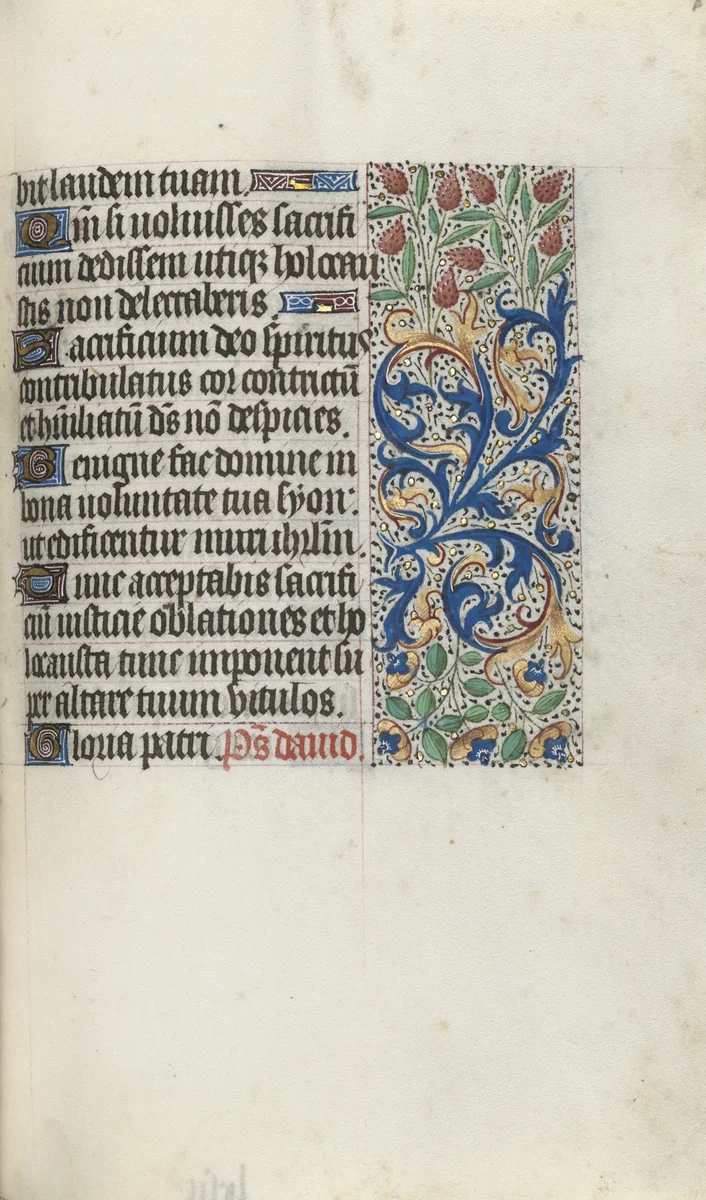 bit laudem tuam.
Qm̄ si uoluisses sacrifi
cium dedissem utiqꝫ holocau
stis non delectaberis.
Sacrificium deo spiritus
contribulatus cor contrictū
et hūiliatū dс̄ nō despicies.
Benigne fac domine in
bona uoluntate tua syon:
ut edificentur muri ihrl̄m.
Tunc acceptabis sacrifi
ciū iusticie oblationes et ho
locausta tunc imponent su
per altare tuum vitulos.
Gloria patri. Ps̄ dauid.